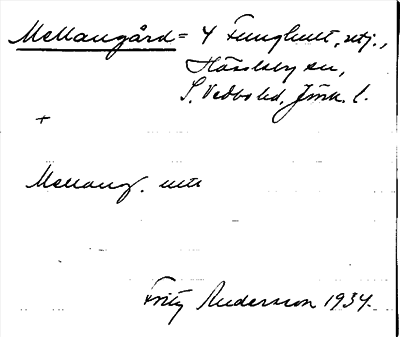 Mellangård = 4 Funghult, utj.,
Hässleby sn,
S. Vedbo hd, Jönk. l.
+
Mellang. utt
Fritz Andersson 1934.